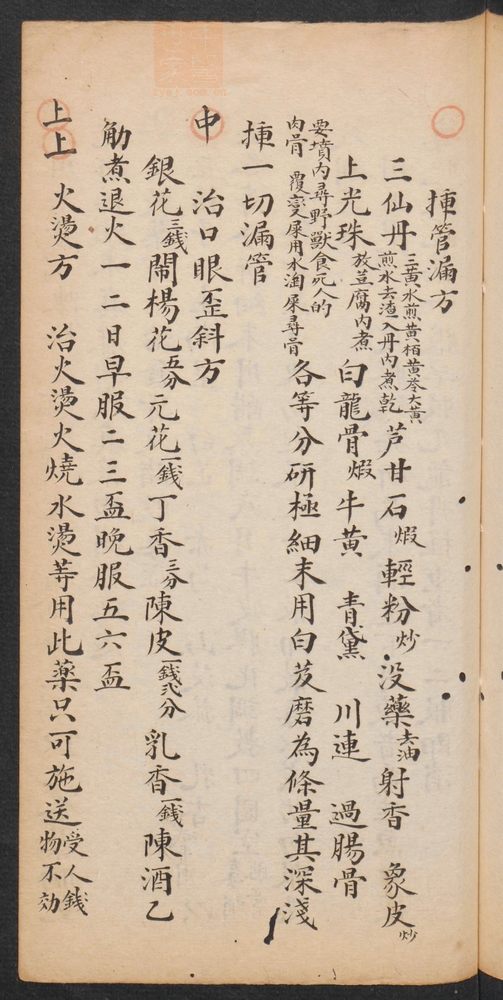 挿管漏方
三仙丹三黄水煎黄栢黄芩大黄煎水去渣入丹内煮乾芦甘石煅輕粉炒没藥去油射香象皮炒
上光珠放荳腐内煮白龍骨煅牛黄青黛川連過腸骨
要墳内尋野獸食死人的肉骨覆變屎用水淘屎尋骨各等分研極細末用白芨磨為條量其深淺
挿一切漏管
中治口眼歪斜方
銀花三錢鬧楊花五分元花一錢丁香三分陳皮一錢弍分乳香一錢陳酒乙
觔煮退火一二日早服二三盃晚服五六盃
上上火燙方治火燙火燒水燙等用此藥只可施送受人錢物不効